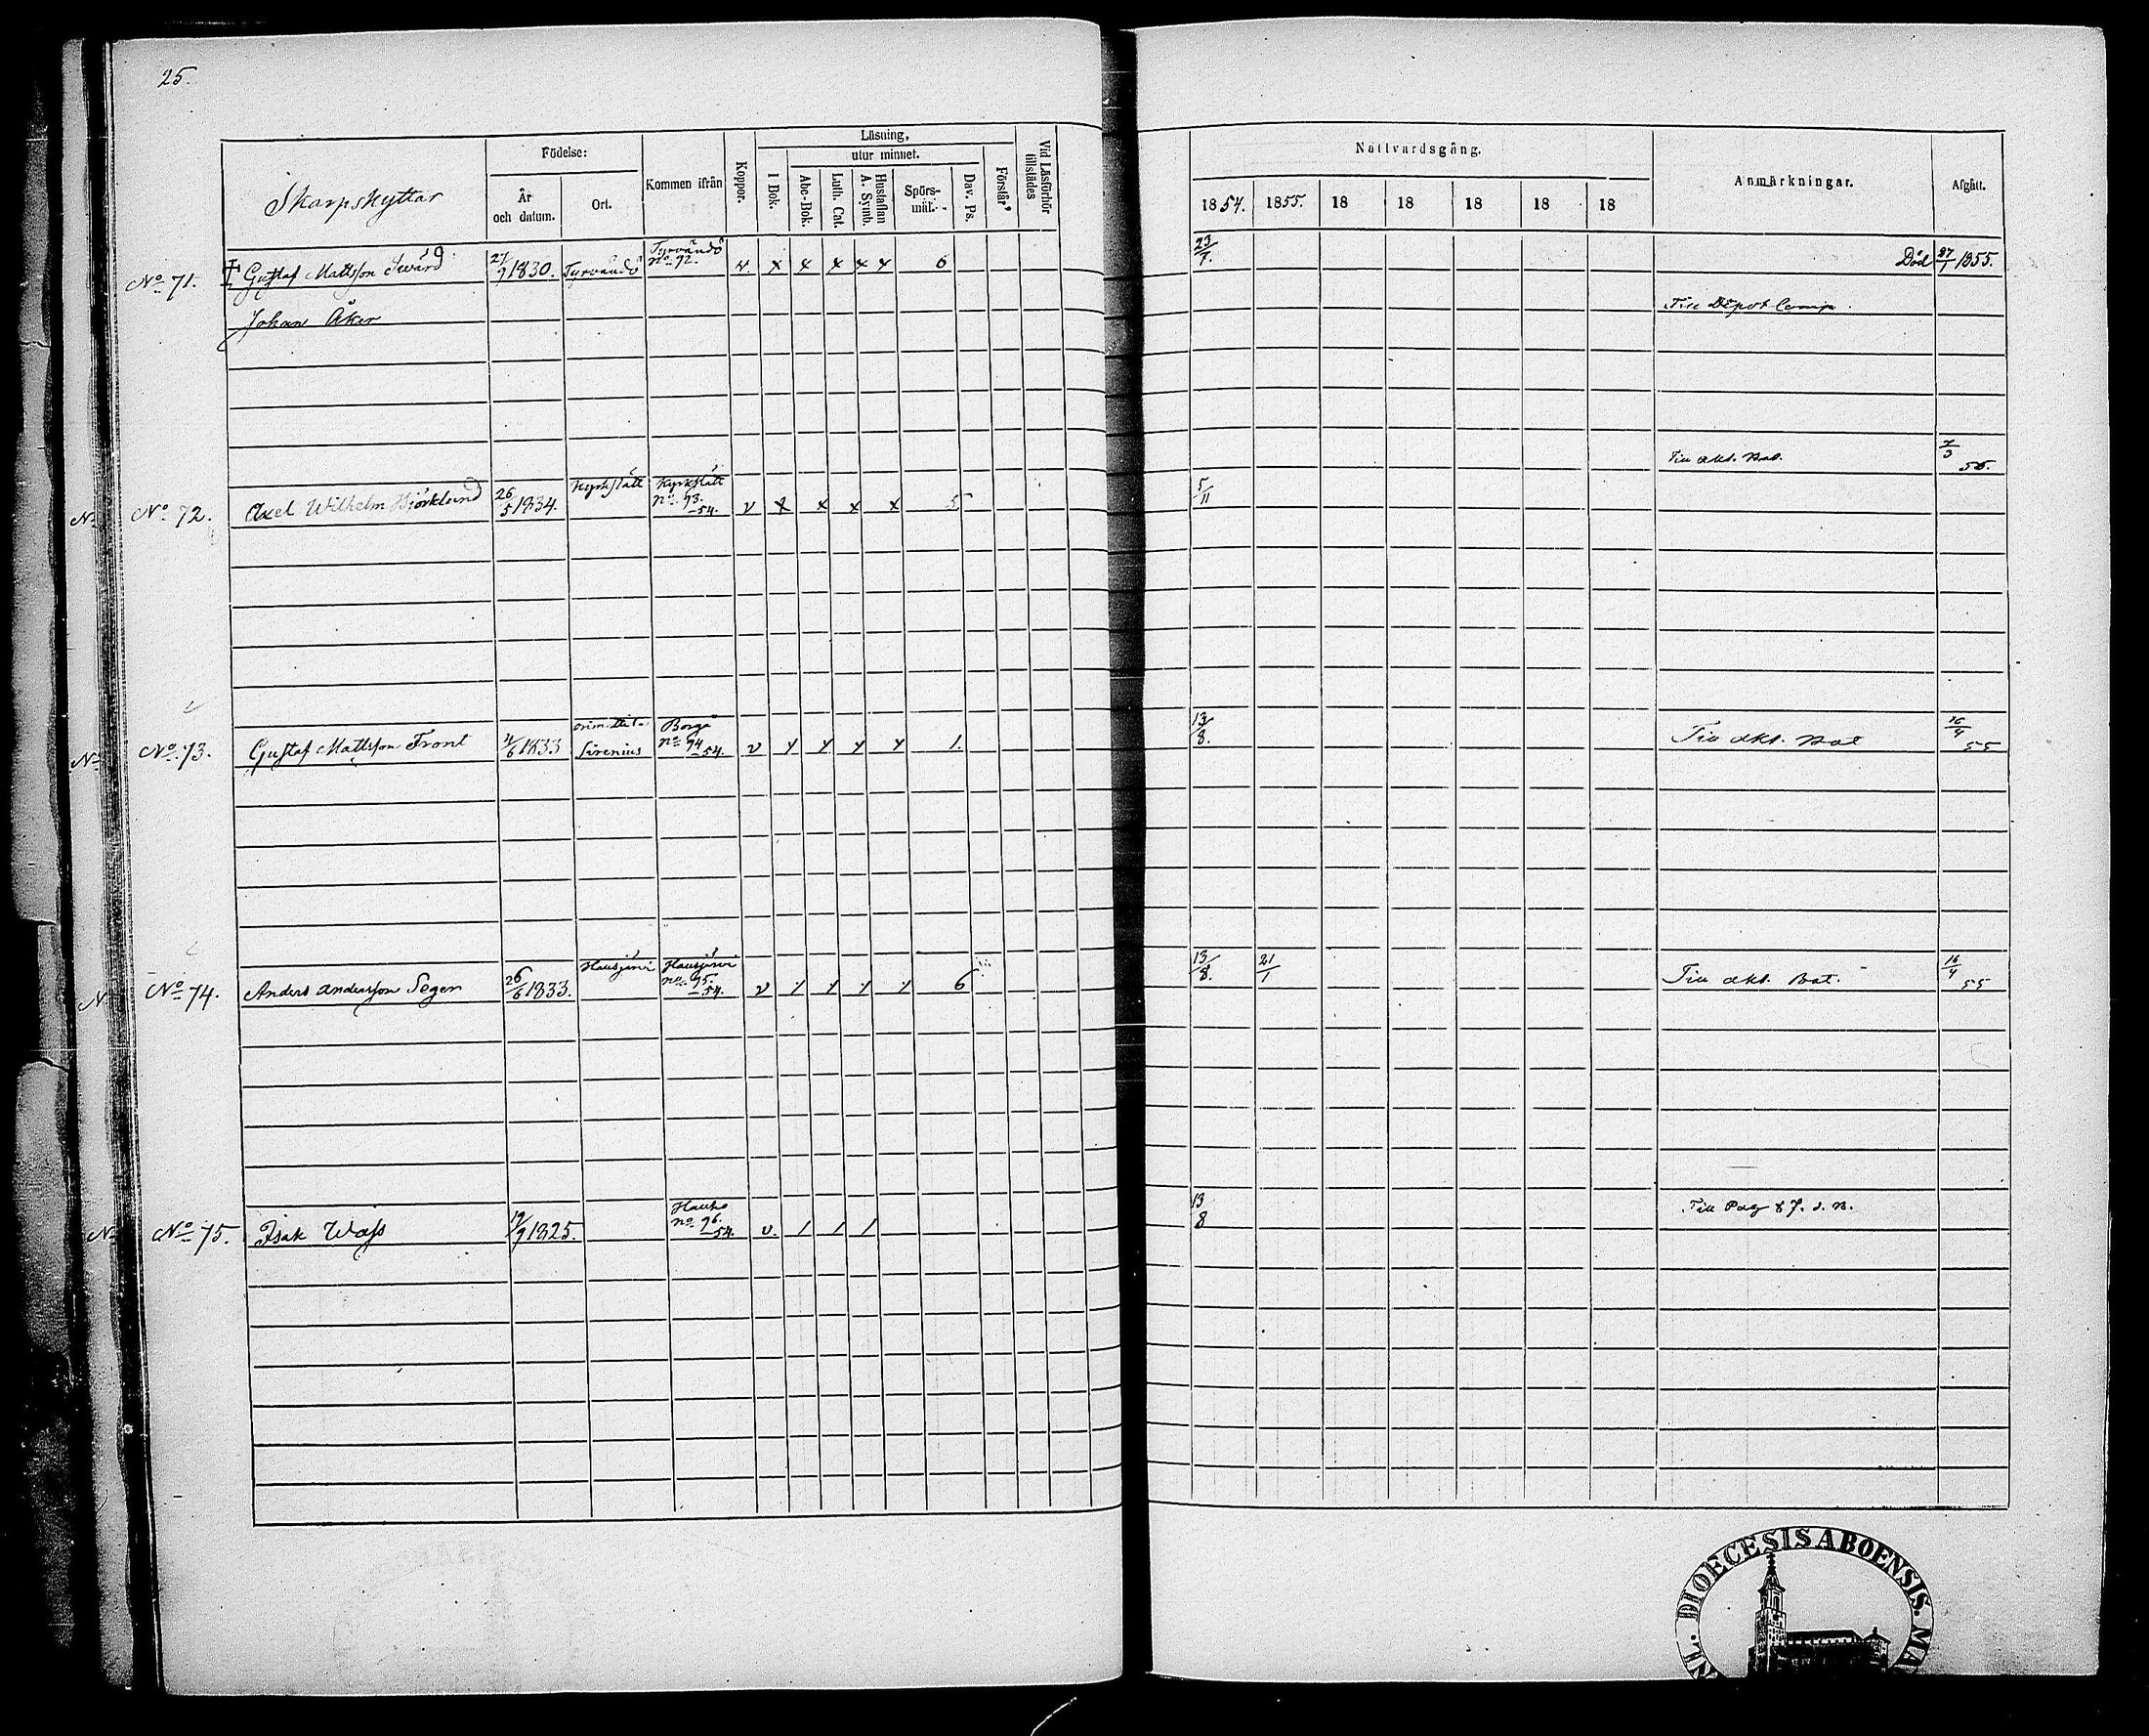 25.
Skarpskyttar
Födelse:
År
och datum.
Ort.
Kommen ifrån
Koppor.
Läsning,
utur minnet.
I Bok.
Abc-Bok.
Luth. Cat.
Hustaflan
A. Symb.
Spörs-
mål.
Dav. Ps.
Förstår
Vid Läsförhör
tillstädes
Nattvardsgång.
1854. 1855. 18 18 18 18 18
Anmärkningar.
Afgått.
No 71. Gustaf Mattsson Swärd 27/9 1830. Tyrvändö Tyrvändö No 92. 6 23/7. Död 27/1 1855.
Johan Åker Till Depot Comp.
Till akt. Bat. 7/3 55.
No 72. Axel Wilhelm Björklund 26/5 1834. Kyrkslätt Kyrkslätt No 93. -54. v x x x x 5 5/11
No 73. Gustaf Mattsson Front 4/6 1833 Sirenius Borgå No 94 -54. v 1. 13/8. Till akt. Bat 16/4 55
No 74. Anders Andersson Seger 26/6 1833. Hausjärvi Hausjärvi No 95. -54. v 6 13/8. 21/1 Till akt. Bat. 16/4 55
No 75. Isak Wass 19/9 1825. Hauho No 96. -54. v. 13/8 Till Pag 87. d. B.
DIOECESIS ABOENSIS.